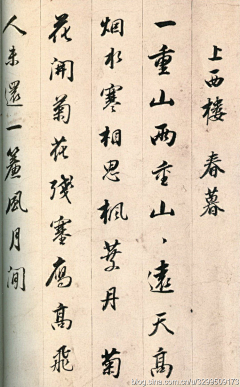 上西楼 春暮
一重山兩重山、遠天高
烟水寒相思楓葉丹 菊
花開菊花殘塞雁高飛
人未還一簾風月閒
blog.sina.com.cn/u/3299509173